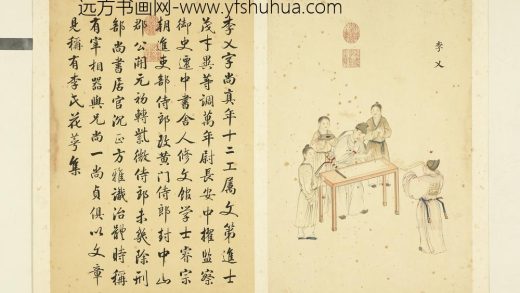 远方书画网-www.yfshuhua.com
李乂
李乂字尚真年十二工属文第進士
茂才異等調萬年尉長安中擢監察
御史遷中書舍人修文館学士睿宗
朝進吏部侍郎改黄门侍郎封中山
郡公開元初轉紫微侍郎未幾除刑
部尚書居官沉正方雅識治體時稱
有宰相器與兄尚一尚貞俱以文章
見稱有李氏花萼集